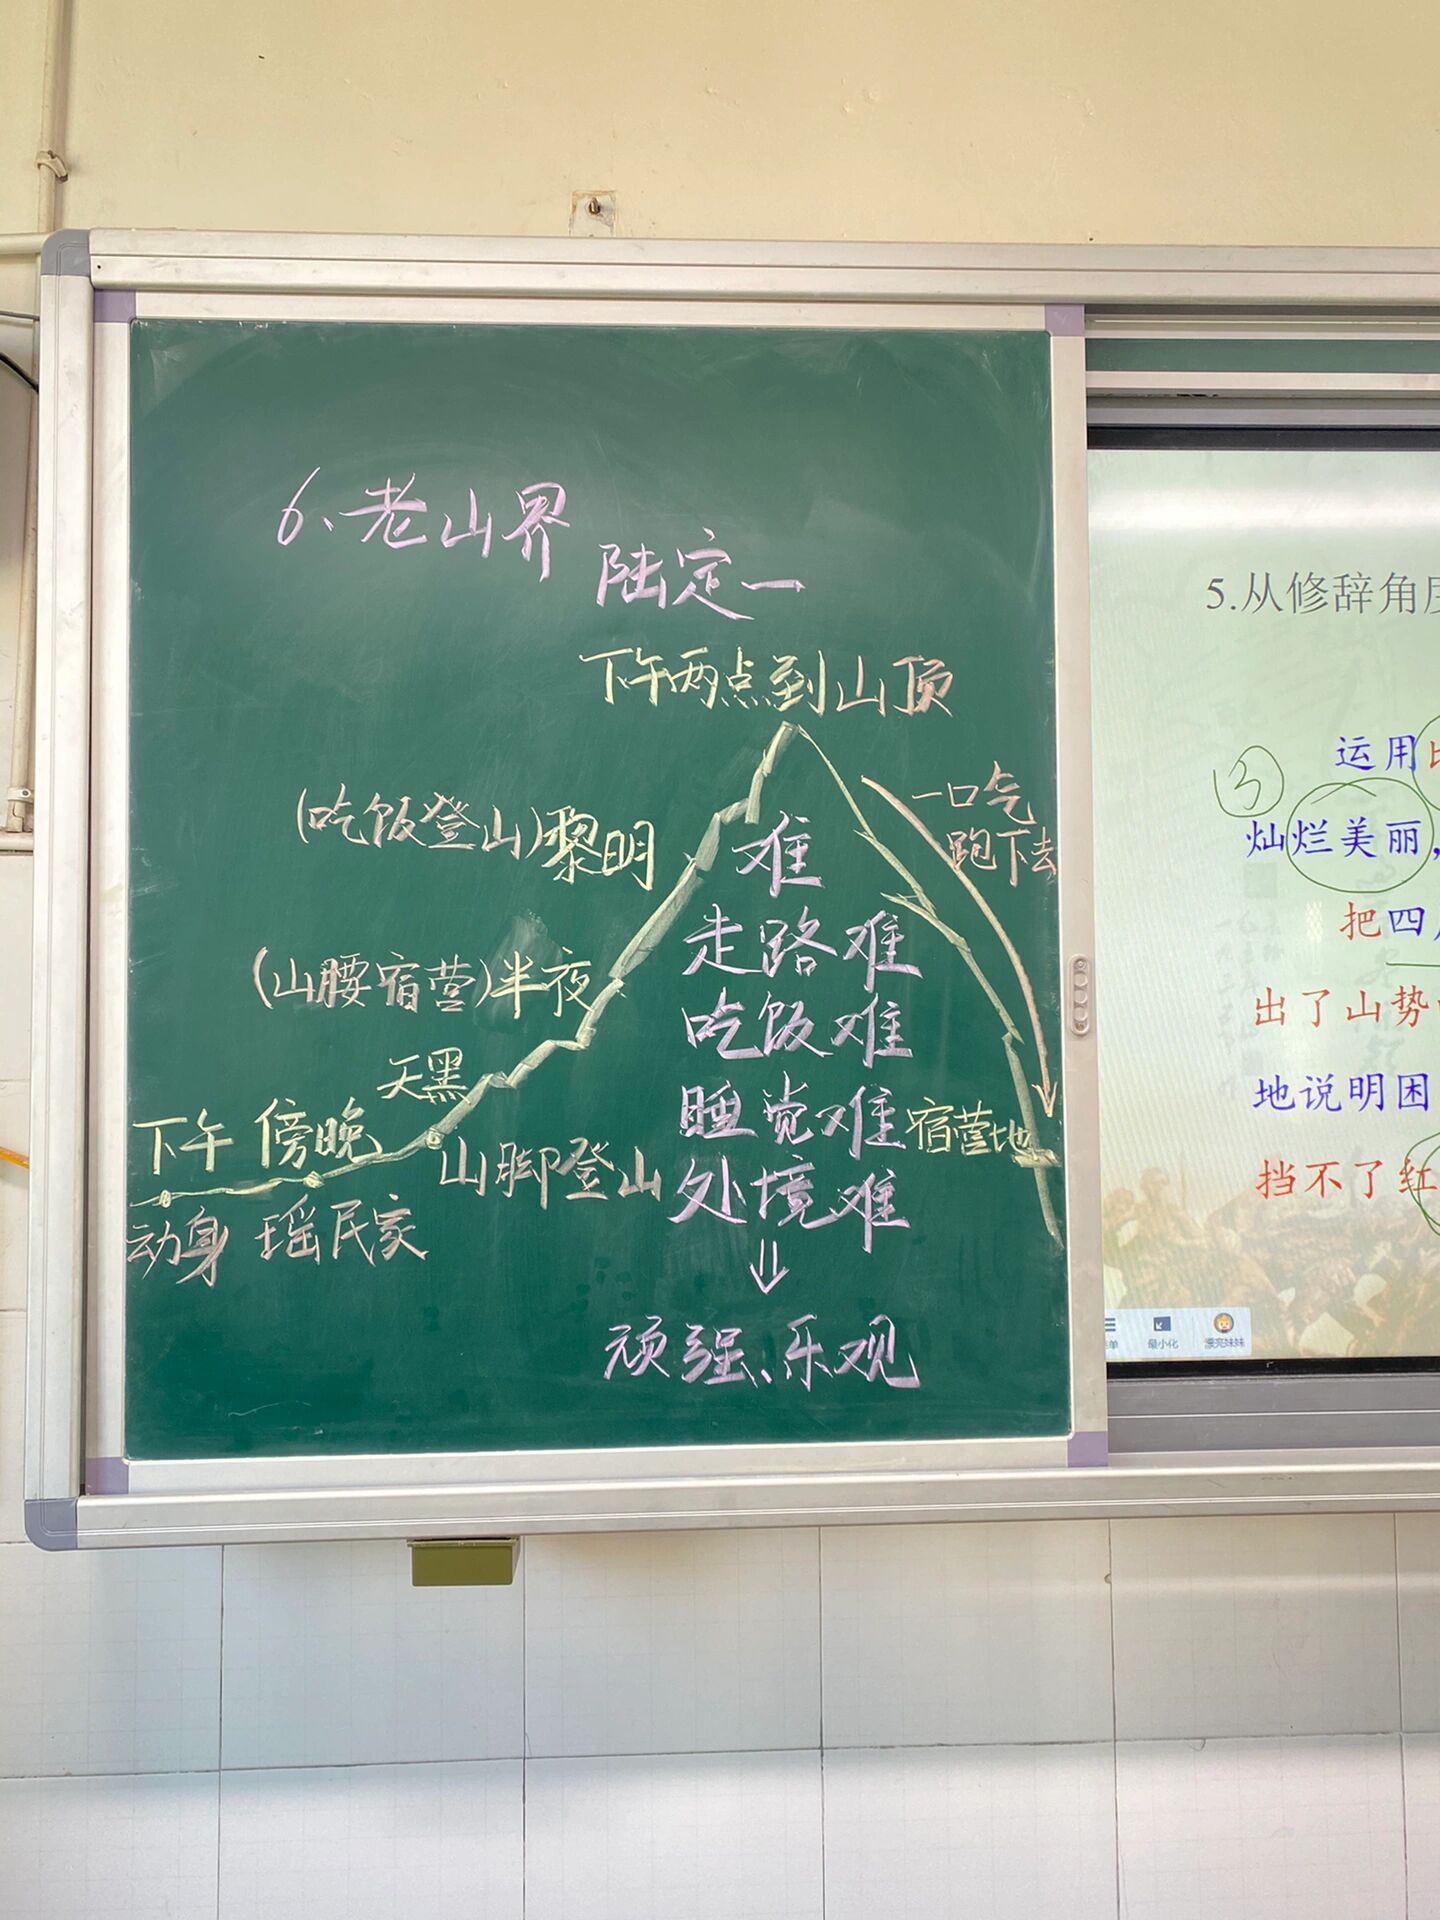 6、老山界
陆定一
下午两点到山顶
(吃饭登山)黎明
一口气
跑下去
难
走路难
(山腰宿营)半夜
吃饭难
天黑
睡觉难
宿营地
下午 傍晚
山脚登山
处境难
动身 瑶民家
顽强、乐观
5.从修辞角度
③
运用
灿烂美丽，
把四
出了山势
地说明困
挡不了红
最小化
漂亮妹妹